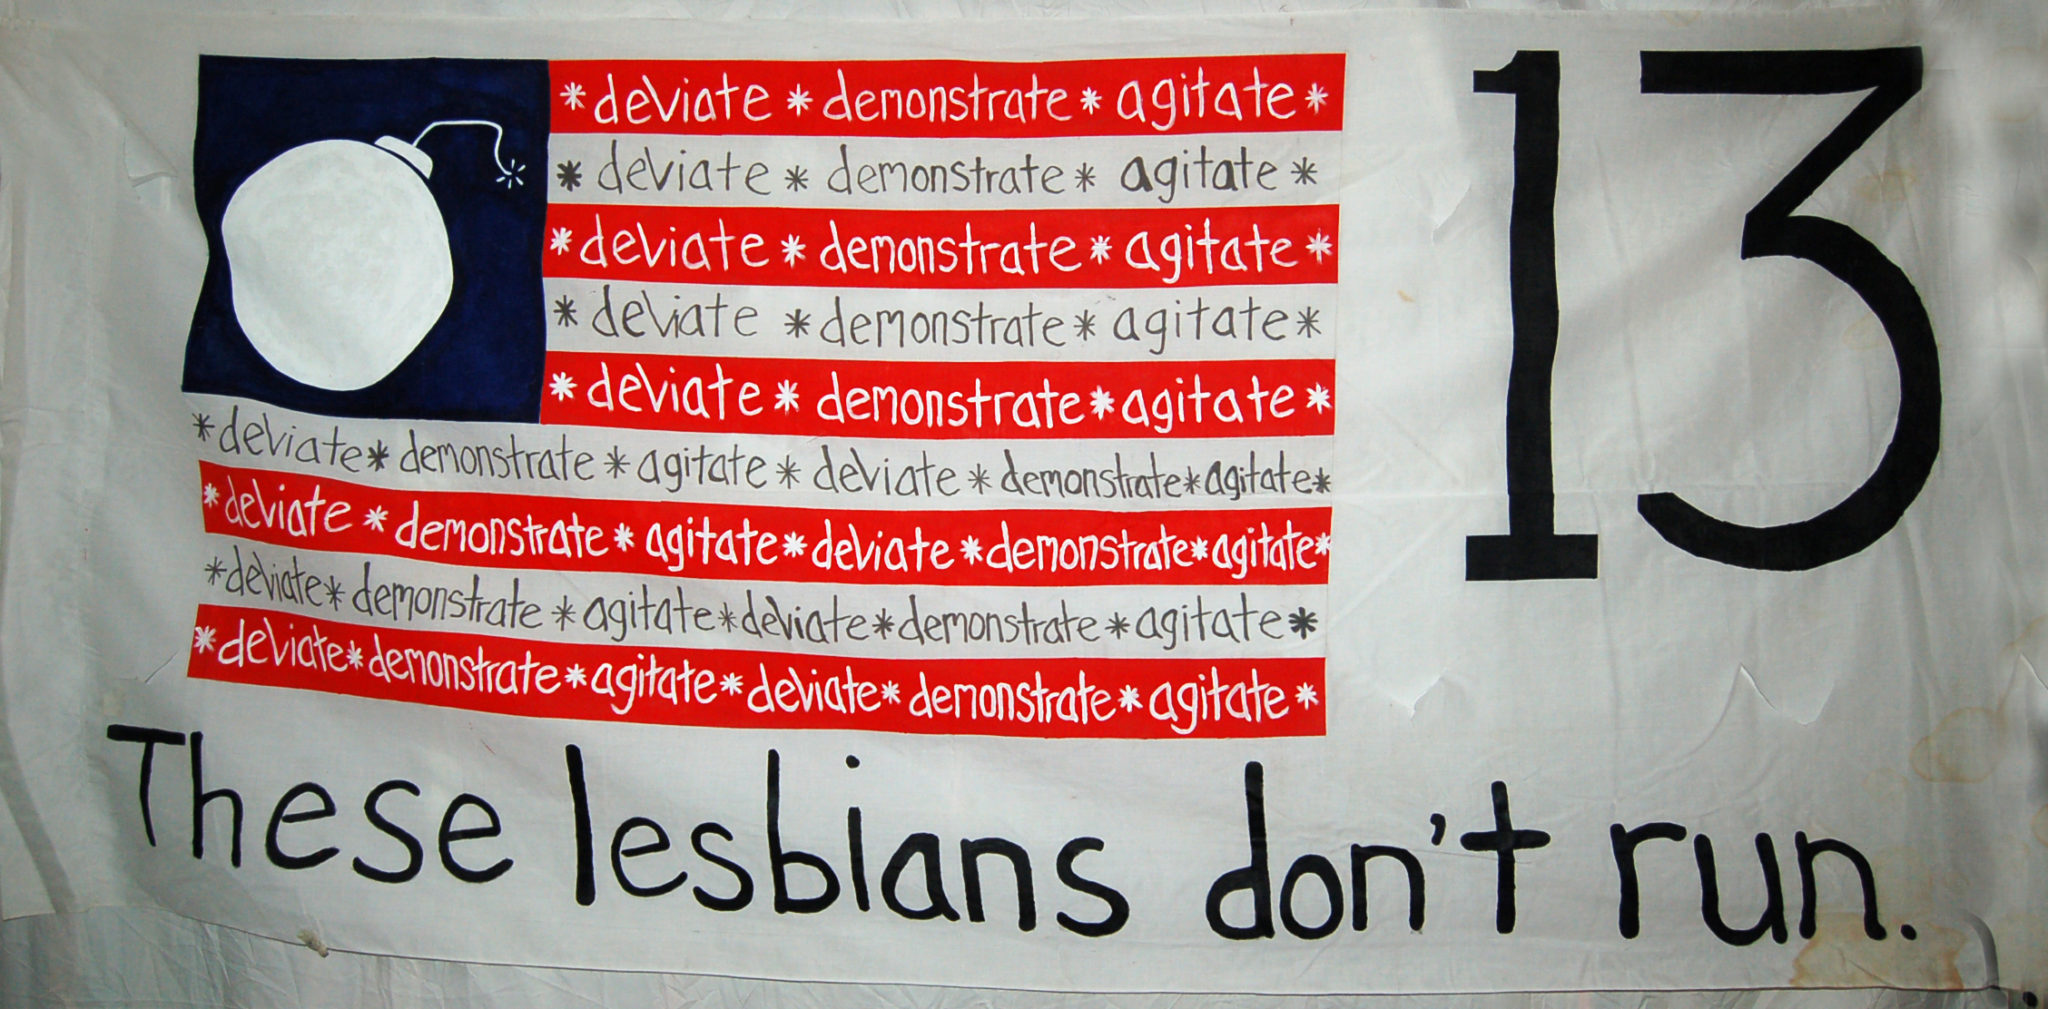 *deviate*demonstrate*agitate*
*deviate*demonstrate*agitate*
*deviate*demonstrate*agitate*
*deviate*demonstrate*agitate*
*deviate*demonstrate*agitate*
*deviate*demonstrate*agitate*deviate*demonstrate*agitate*
*deviate*demonstrate*agitate*deviate*demonstrate*agitate*
*deviate*demonstrate*agitate*deviate*demonstrate*agitate*
*deviate*demonstrate*agitate*deviate*demonstrate*agitate*
13
These lesbians don't run.